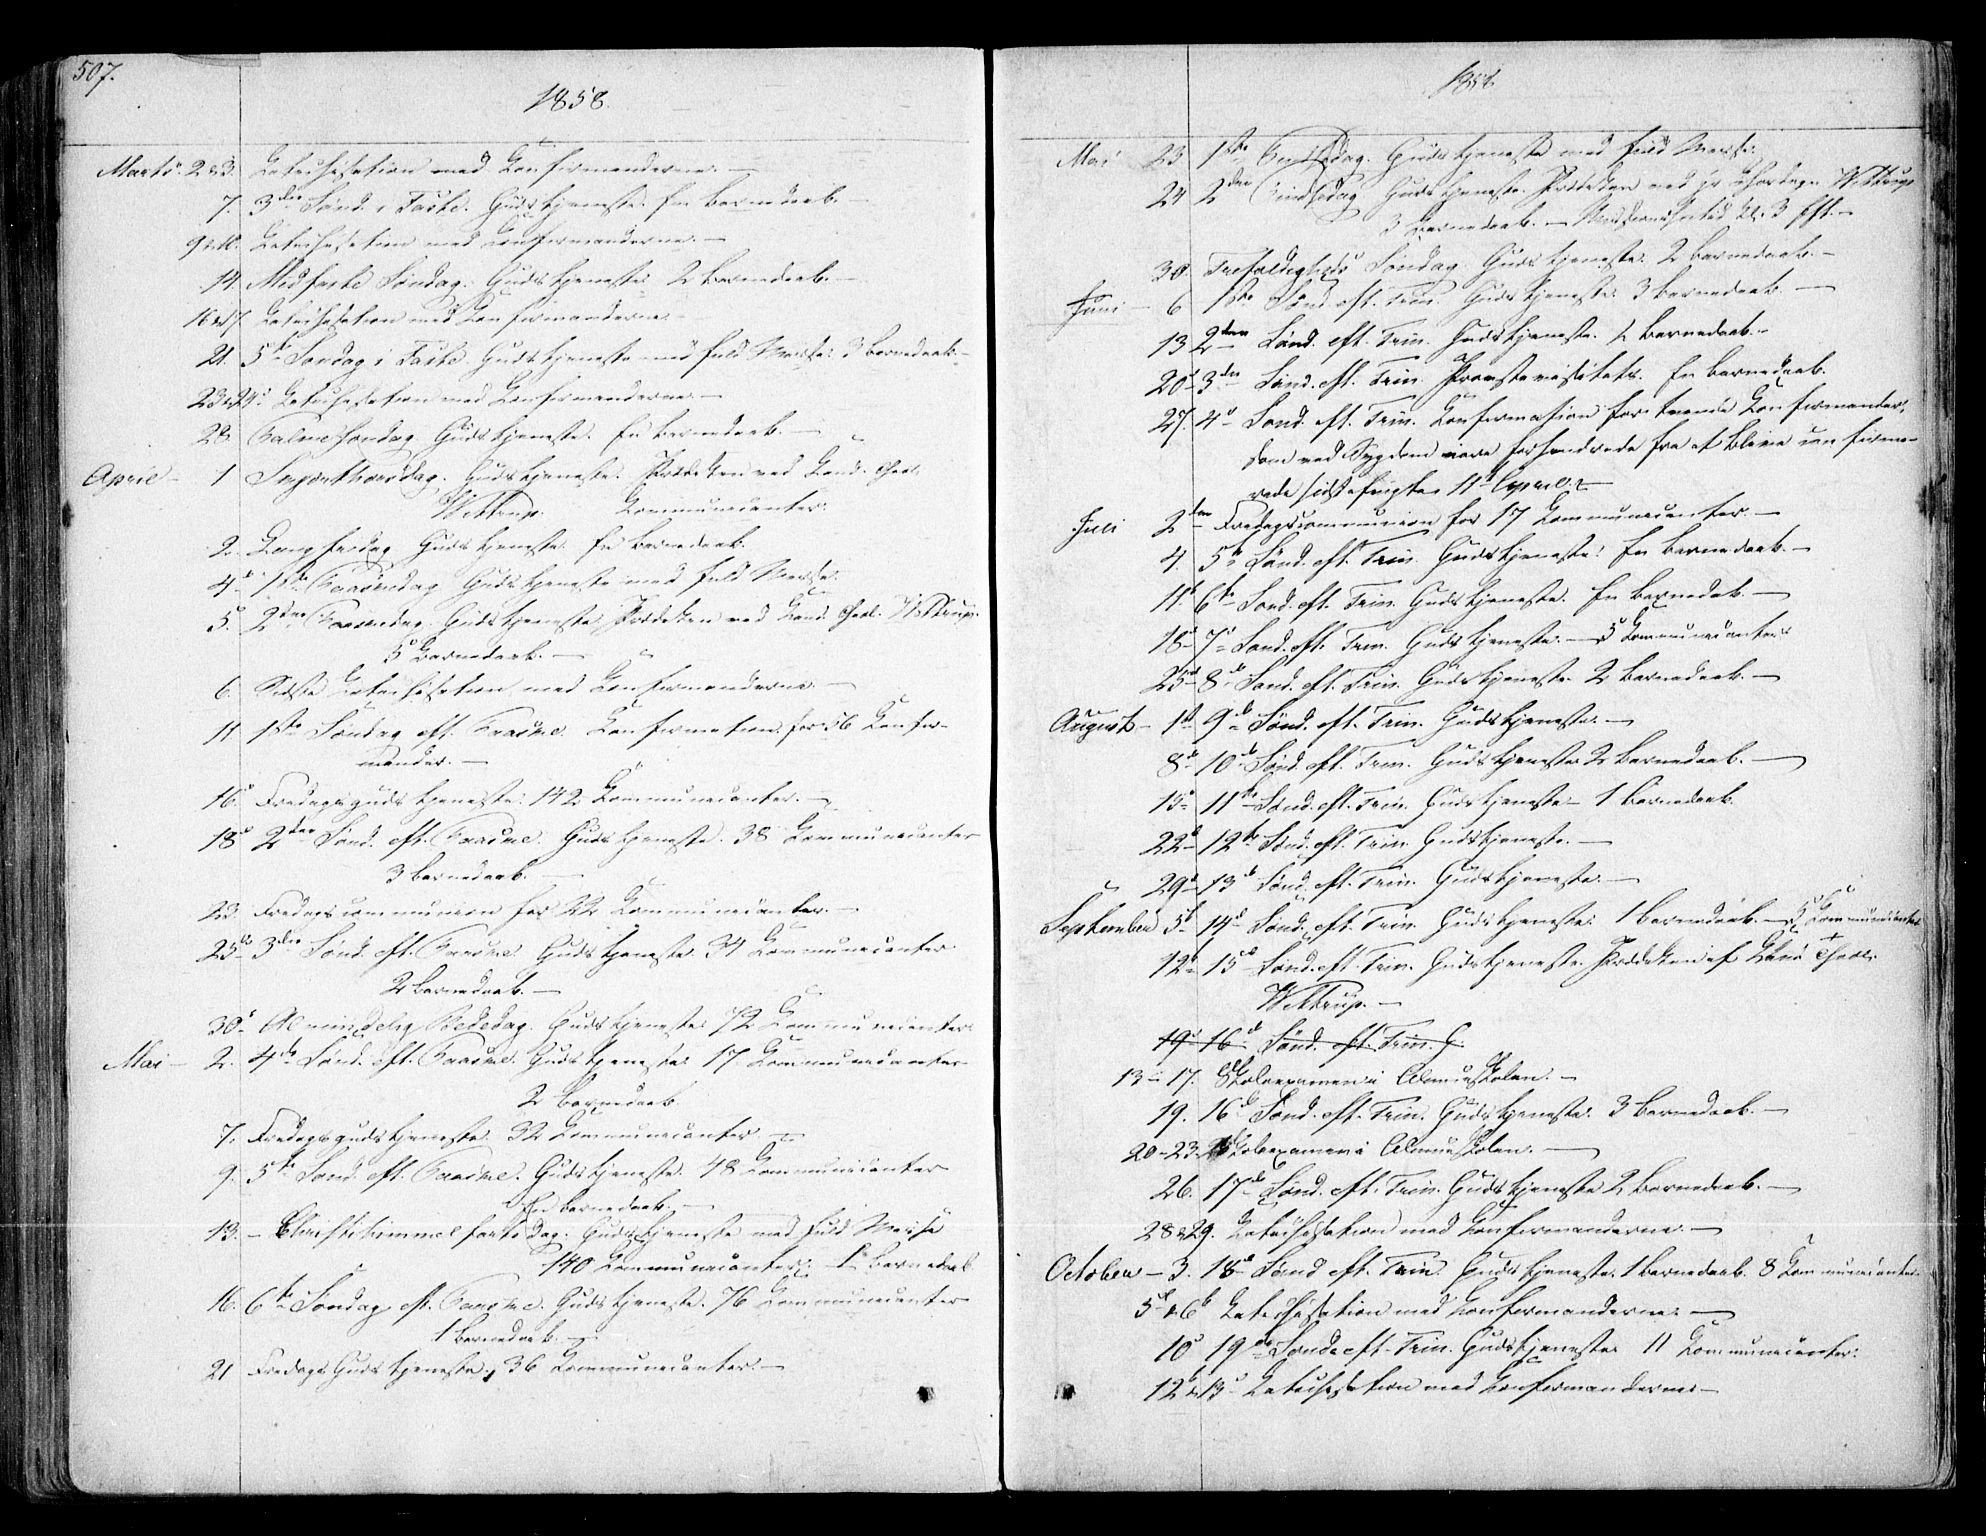 507.
1858.
Marts 2 & 3. Catechisation med Confirmanderne. —
7. 3die Sønd. i Faste. Gudstjeneste. En Barnedaab. —
9 & 10. Catechisation med Confirmanderne. —
14. Midfaste Søndag. Gudstjeneste 2 Barnedaab. —
16 & 17. Catechisation med Confirmanderne —
21. 5te Søndag i Faste Gudstjeneste med fuld Messe. 3 Barnedaab. —
23 & 24. Catechisation med Confirmanderne. —
28. Palmesøndag. Gudstjeneste. En Barnedaab. —
April — 1 Skjærthorsdag. Gudstjeneste. Prædiken ved Cand. theol.
Wittrup. Communicanter.
2. Langfredag Gudstjeneste. En Barnedaab.
4de 1ste Paaskedag Gudstjeneste med fuld Messe.
5. 2den Paaskedag. Gudstjeneste. Prædiken ved Cand. theol. Wittrup.
5 Barnedaab. —
6. Sidste Catechisation med Confirmanderne. —
11 1ste Søndag eft. Paaske. Confirmation for 56 Confir-
mander. —
16. Fredagsgudstjeneste. 142 Communicanter. —
18. 2den Sønd. eft. Paaske. Gudstjeneste. 38 Communicanter
3 Barnedaab. —
23. Fredagscommunion for 22 Communicanter. —
25de 3die Sønd. eft. Paaske Gudstjeneste 34 Communicanter
2 Barnedaab. —
30. Almindelig Bededag. Gudstjeneste 72 Communicanter.
Mai — 2. 4de Sønd. eft. Paaske. Gudstjeneste 17 Communicanter
2 Barnedaab.
7. Fredagsgudstjeneste. 32 Communicanter —
9. 5te Sønd. eft. Paaske. Gudstjeneste. 48 Communicanter
En Barnedaab. —
13. — Christi Himmelfartsdag. Gudstjeneste med fuld Messe
140 Communicanter. 1 Barnedaab
16. 6te Søndag eft. Paaske. Gudstjeneste. 76 Communicanter
1 Barnedaab. —
21 Fredags Gudstjeneste, 36 Communicanter. —
1858
Mai 23 1ste Pindsedag. Gudstjeneste med fuld Messe.
24 2den Pindsedag Gudstjeneste. Prædiken ved Wittrup
3 Barnedaab. — Kl. 3 Eft. —
30. Trefoldigheds Søndag Gudstjeneste. 2 Barnedaab. —
Juni — 6 1ste Sønd. eft. Trin. Gudstjeneste 3 Barnedaab —
13 2den Sønd. eft. Trin. Gudstjeneste. 2 Barnedaab. —
20 3die Sønd. eft. Trin Provstevisitats. En Barnedaab.
27. 4de Sønd. eft. Trin. Confirmation for tvende Confirmander,
som ved Sygdom vare forhindrede fra at blive confirme-
rede sidstafvigte 11te April. —
Juli 2den Fredagscommunion for 17 Communicanter. —
4. 5te Sønd. eft. Trin. Gudstjeneste. En Barnedaab. —
11. 6te Sønd. eft. Trin. Gudstjeneste. En Barnedab. —
18 7de Sønd. eft. Trin. Gudstjeneste. — 5 Communicanter
25 8de Sønd. eft. Trin. Gudstjeneste 2 Barnedaab. —
August — 1ste 9de Sønd. eft. Trin. Gudstjeneste. —
8de 10de Sønd. eft. Trin. Gudstjeneste 2 Barnedaab. —
15de 11te Sønd. eft. Trin. Gudstjeneste — 1 Barnedaab.
22de 12te Sønd. eft. Trin. Gudstjeneste. —
29de 13de Sønd. eft. Trin. Gudstjeneste. —
September 5te 14de Sønd. eft. Trin Gudstjeneste. 1 Barnedaab. — 5 Communicanter
12te 15de Sønd. eft. Trin. Gudstjeneste. Prædiken af Cand. theol.
Wittrup. —
19 16de Sønd. eft. Trin. G.
13 — 17. Skoleexamen i Almueskolen. —
19. 16de Sønd. eft. Trin. Gudstjeneste. 3 Barnedaab. —
20 – 23. Skoleexamen i Almueskolen. —
26. 17de Sønd. eft. Trin. Gudstjeneste 2 Barnedaab. —
28 & 29. Catechisation med Confirmanderne. —
October — 3. 18de Sønd eft. Trin. Gudstjeneste. 1 Barnedaab. 8 Communicanter.
5te & 6te Catechisation med Confirmanderne. —
10 19de Sønd. eft. Trin. Gudstjeneste 11 Communicanter.
12te & 13 Catechisation med Confirmanderne —